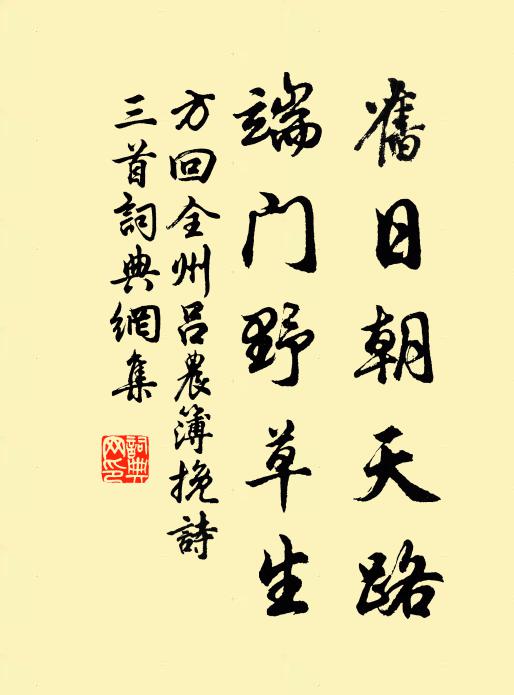 舊日朝天路
端门野草生
方回全州呂農簿挽詩
三首詞典網集
詞典网印